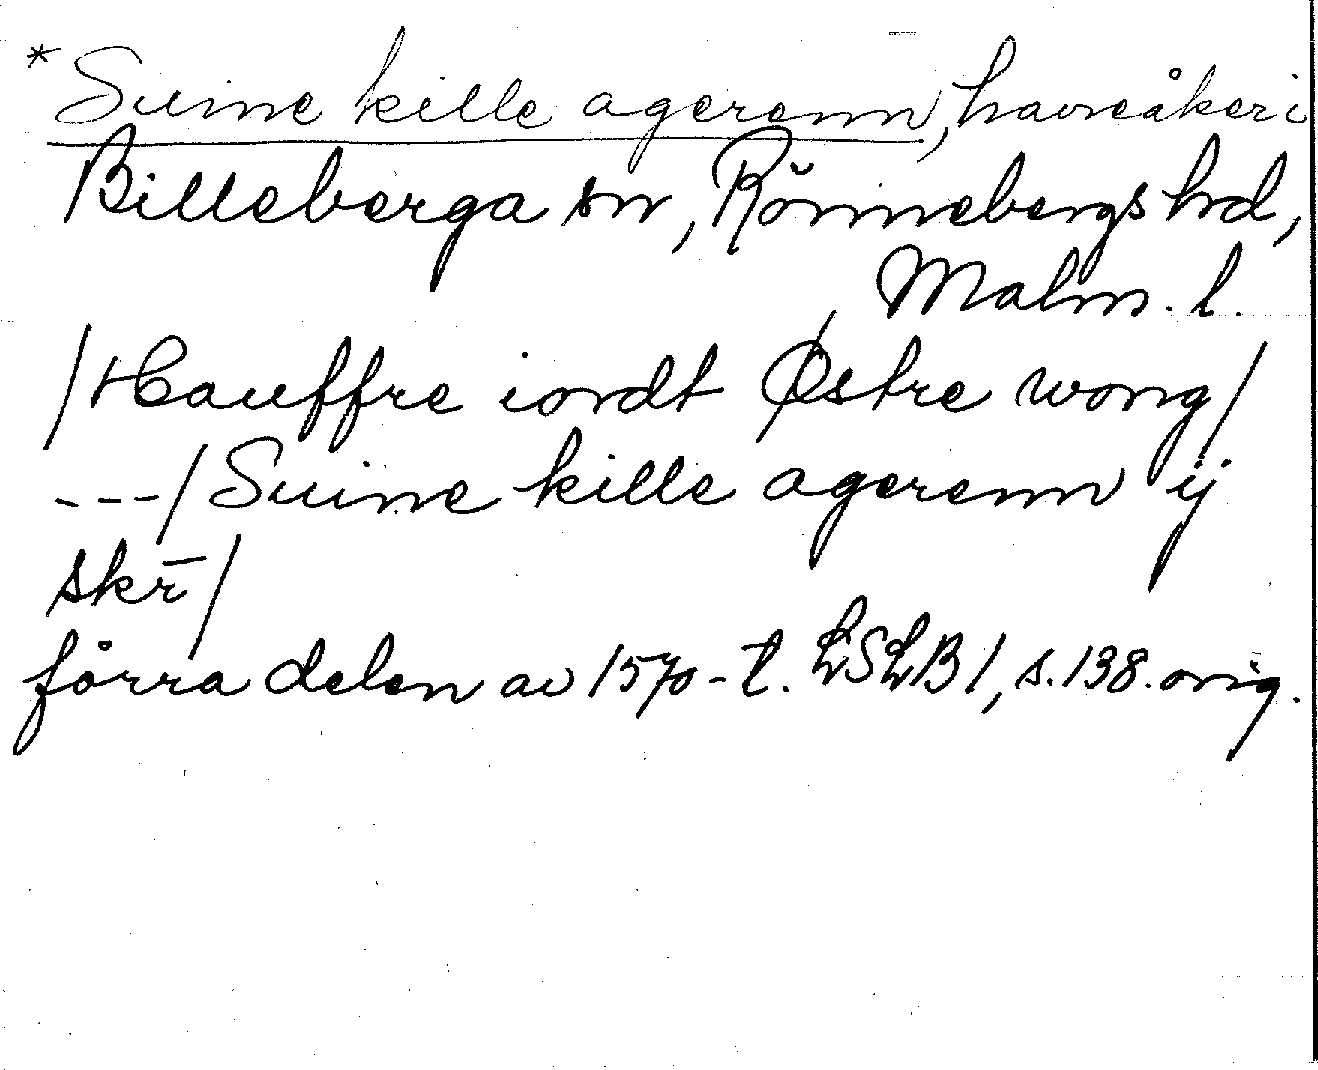 * Suine kille agerenn, havreåker i
Billeberga sn, Rönnebergs hd,
Malm. l.
/Hauffre iordt Østre wong/
---/Suine kille agerenn ij
skr̄/
förra delen av 1570-t. LSLB 1, s. 138. orig.